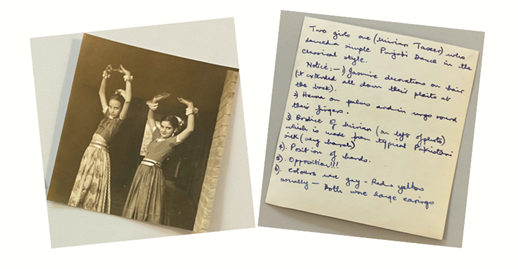 Two girls are (Miriam Taseer) who
danced a simple Punjabi Dance in the
classical style.
Notice:- 1) Jasmine decorations on hair
(it extended all down their plaits at
the back).
2) Henna on palms and in rings round
their fingers.
3) Bodice of Miriam (on left of photo)
which is made from typical Pakistani
silk (very banal).
4). Position of hands.
5). Opposition!!!
6). Colours were gay - Red & yellow
usually - both wore large earrings